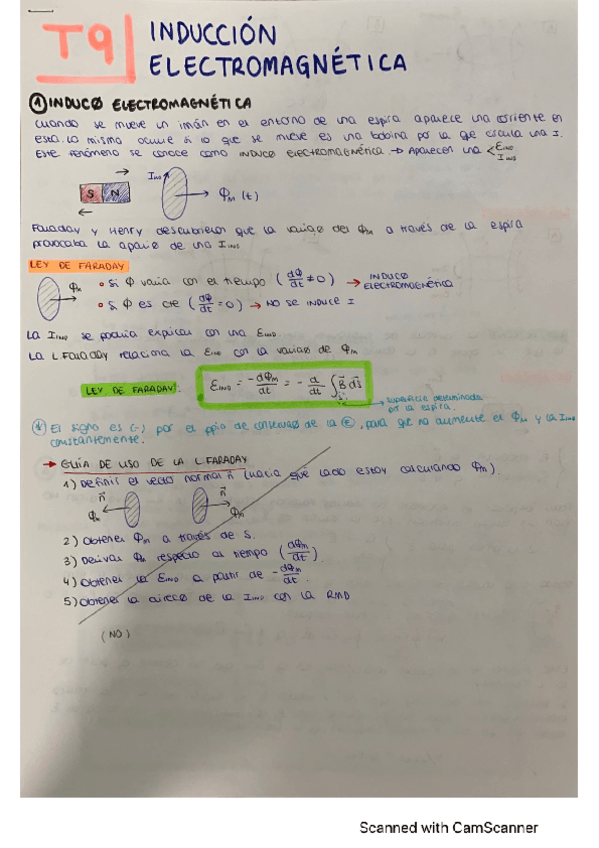 T9 INDUCCIÓN
ELECTROMAGNÉTICA
① INDUCø ELECTROMAGNÉTICA
Cuando se mueve un imán en el entorno de una espira aparece una corriente en
esta. Lo mismo ocurre si lo que se mueve es una bobina por la que circula una I.
Este fenómeno se conoce como INDUCø ELECTROMAGNÉTICA. → Aparecen una < εIND IIND
S N IIND Φm (t)
Faraday y Henry descubrieron que la variaø del Φm a través de la espira
provocaba la apariø de una IIND
LEY DE FARADAY
Φm • Si Φ varía con el tiempo (dΦ/dt ≠ 0) → INDUCø ELECTROMAGNÉTICA
• Si Φ es cte (dΦ/dt = 0) → NO SE INDUCE I
La IIND se podría explicar con una εIND
La L FARADAY relaciona la εIND con la variaø de Φm
LEY DE FARADAY: εIND = -dΦm/dt = - d/dt ∫s B⃗ ds⃗
superficie determinada
por la espira.
(*) El signo es (-) por el ppio de conservaø de la E, para que no aumente el Φm y la IIND
constantemente.
→ GUÍA DE USO DE LA L.FARADAY
1) Definir el vector normal n⃗ (hacia que lado estoy calculando Φm).
n⃗ n⃗
Φm Φm
2) Obtener Φm a través de S.
3) Derivar Φm respecto al tiempo (dΦm/dt)
4) Obtener la εIND a partir de -dΦm/dt.
5) Obtener la direcø de la IIND con la RMD
(NO)
Scanned with CamScanner